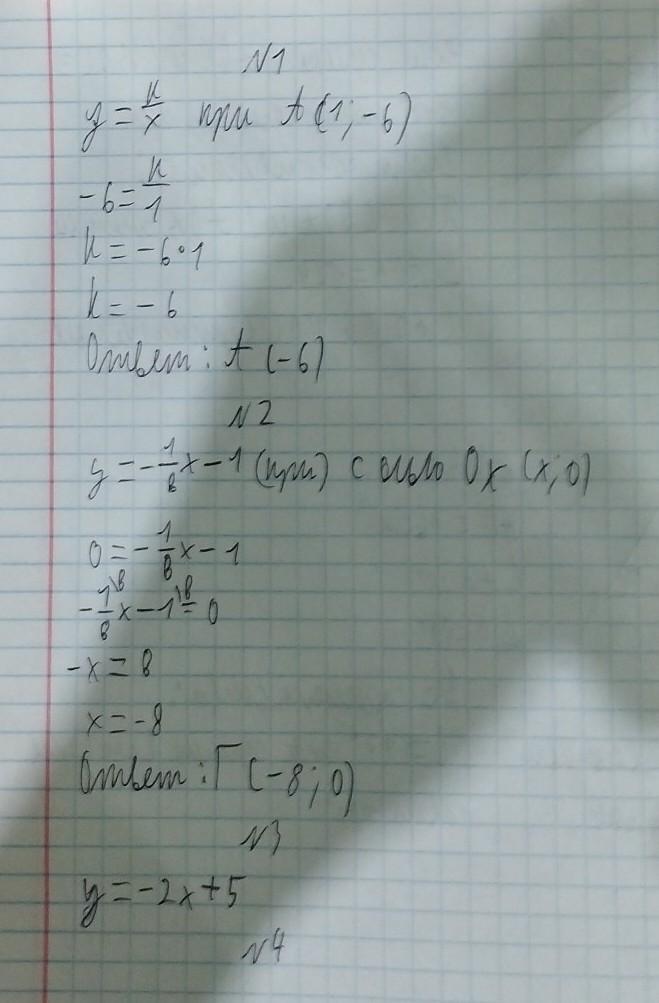 N1
y = k/x при A(1; -6)
-6 = k/1
k = -6·1
k = -6
Ответ: A (-6)
N2
y = -1/8x - 1 (при) с осью Ox (x; 0)
0 = -1/8x - 1
-1\8/8x - 1\8 = 0
-x = 8
x = -8
Ответ: Г (-8; 0)
N3
y = -2x + 5
N4